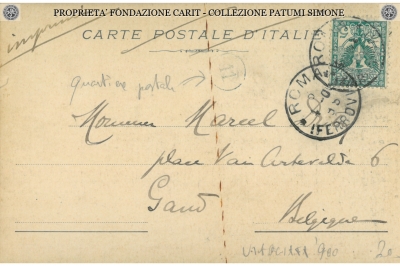 PROPRIETA' FONDAZIONE CARIT - COLLEZIONE PATUMI SIMONE
CARTE POSTALE D'ITALIE
ROMA
ROMA
(FERROV
postale
17
Monsieur Marcel
place Van Artevelde 6
Gand
Belgique
900
20